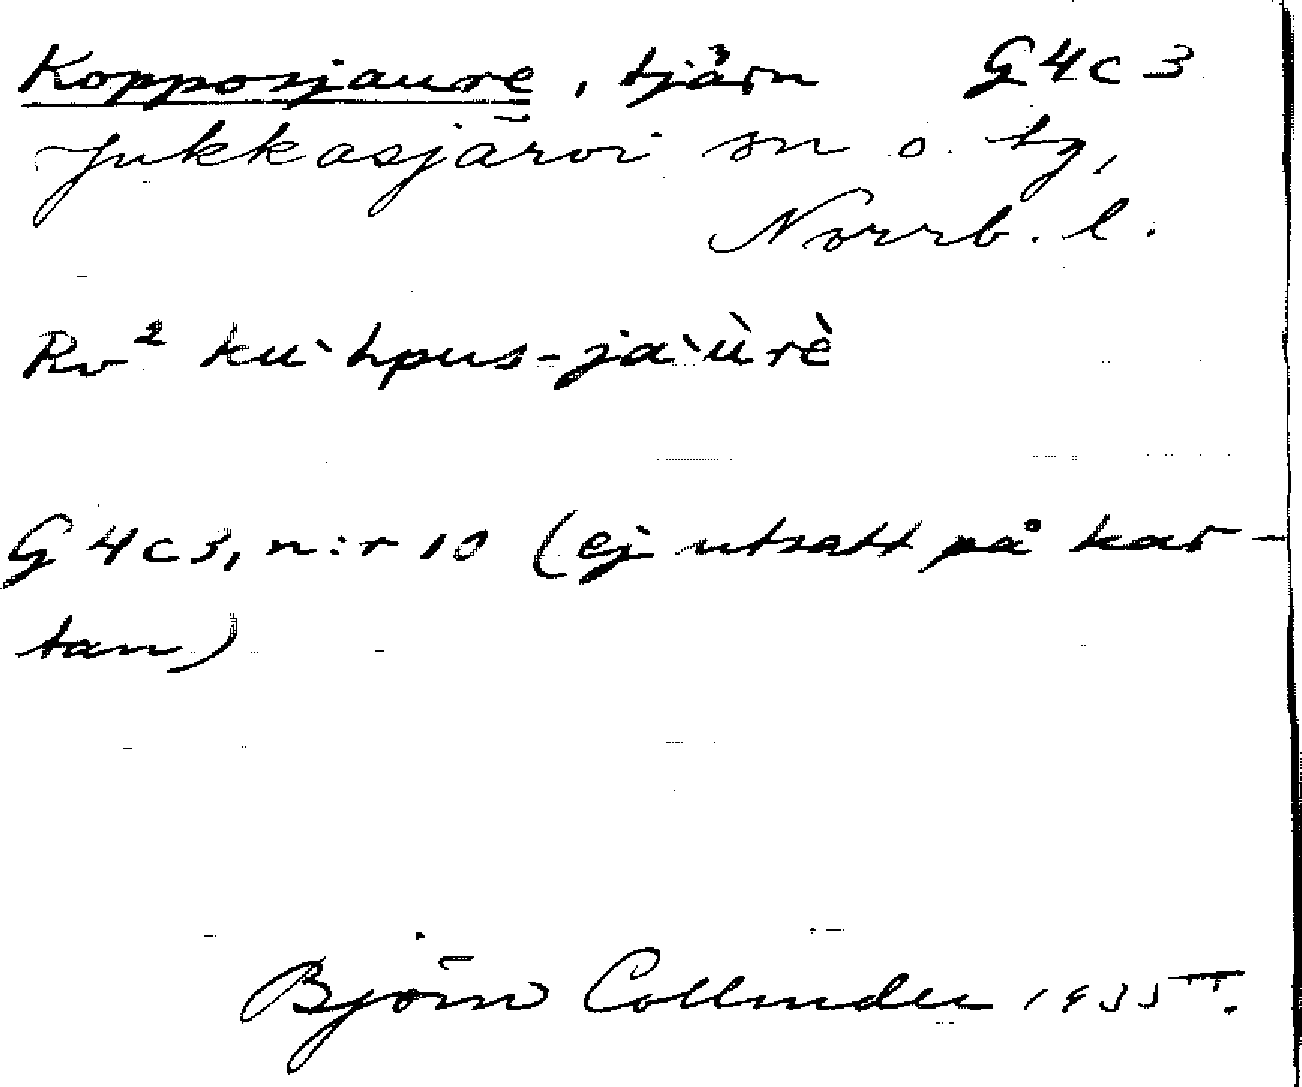 Kopposjaure, tjärn G4c3
Jukkasjärvi sn o. tg,
Norrb. l.
Rv² ku`hpus-ja`ùrè
G4c3, n:r 10 (ej utsatt på kar-
tan)
Björn Collinder 1935.